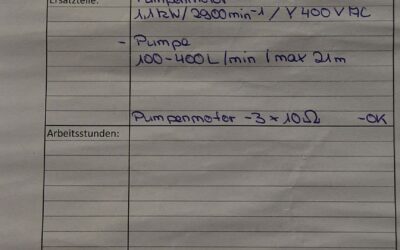 Ersatzteile: Pumpenmotor
1,1kW/2900min⁻¹/Y400VAC
- Pumpe
100-400L/min/max 21m
Pumpenmotor -3 x 10Ω -OK
Arbeitsstunden: